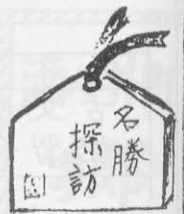 名勝
探訪